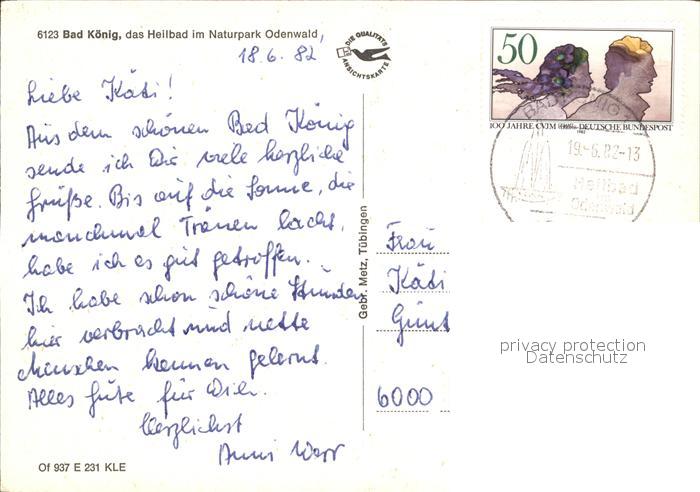 6123 Bad König, das Heilbad im Naturpark Odenwald,
18.6.82
DIE QUALITÄTS
ANSICHTSKARTE
50
100 JAHRE CVJM DEUTSCHE BUNDESPOST
1982
BAD KÖNIG
19.-6.82-13
Heilbad
Odenwald
Liebe Käti!
Aus dem schönen Bad König
sende ich Dir viele herzliche
Grüße. Bis auf die Sonne, die
manchmal Tränen lacht,
habe ich es gut getroffen.
Ich habe schon schöne Stunden
hier verbracht und nette
Menschen kennen gelernt.
Alles Gute für Dich.
Herzlichst
Anni
Gebr. Metz, Tübingen
Frau
Käti
Günt
6000
privacy protection
Datenschutz
Of 937 E 231 KLE